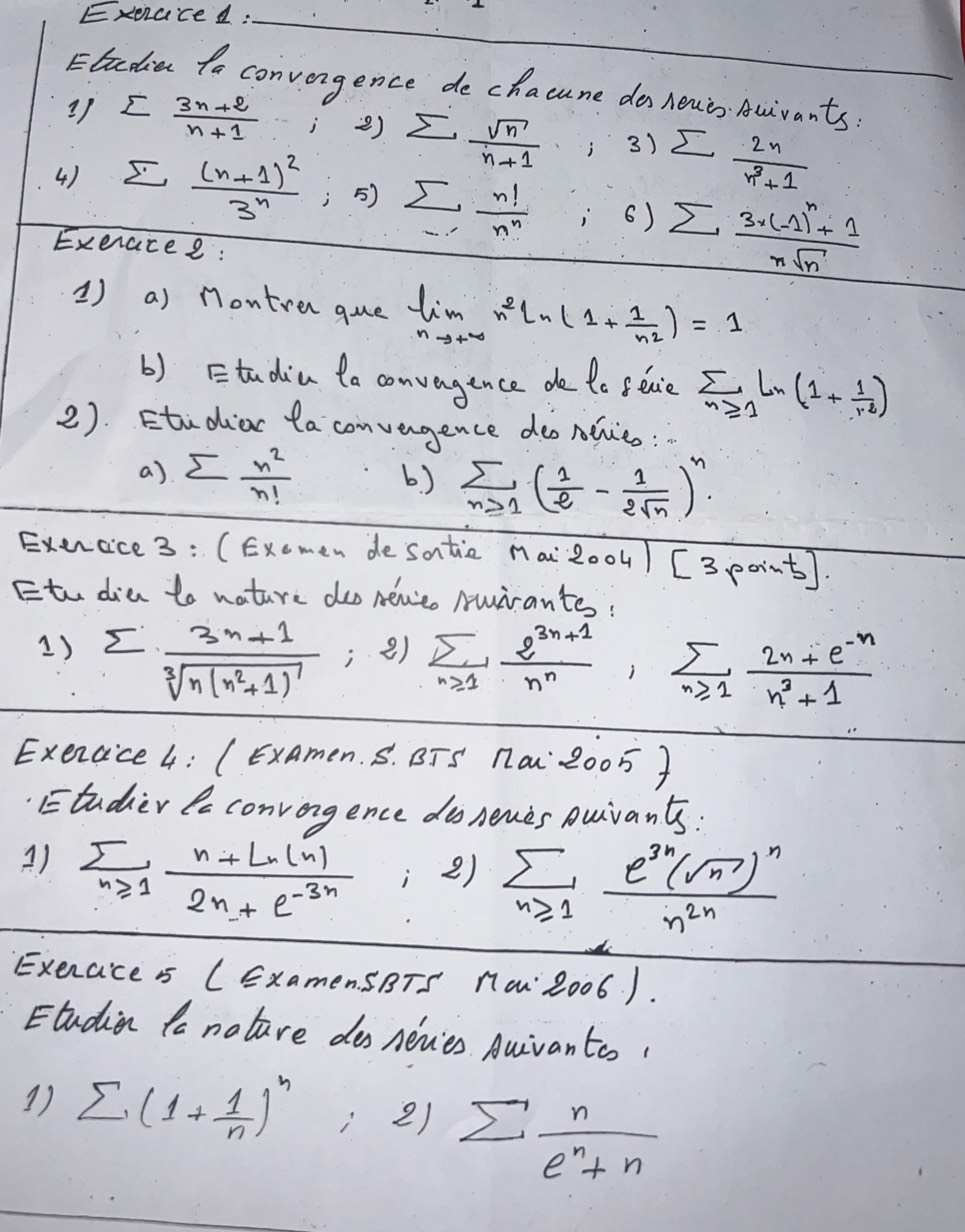 Exercice 1 :
Etudier la convergence de chacune des series suivants :
1) Σ (3n+2)/(n+1) ; 2) Σ √n/(n+1) ; 3) Σ 2n/(n³+1)
4) Σ (n+1)²/3ⁿ ; 5) Σ n!/nⁿ ; 6) Σ (3×(-1)ⁿ+1)/(n√n)
Exercice 2 :
1) a) Montrer que lim n→+∞ n² Ln(1+1/n²) = 1
b) Etudier la convergence de la série Σ n≥1 Ln(1+1/n²)
2). Etudier la convergence des séries :
a) Σ n²/n! b) Σ n≥1 (1/2 - 1/(2√n))ⁿ.
Exercice 3 : (Examen de sortie Mai 2004) [3 points].
Etudier la nature des séries suivantes :
1) Σ (3n+1)/∛(n(n²+1)) ; 2) Σ n≥1 2³ⁿ⁺¹/nⁿ ; Σ n≥1 (2n+e⁻ⁿ)/(n³+1)
Exercice 4 : (Examen. S. BTS Mai 2005)
Etudier la convergence des series suivants :
1) Σ n≥1 (n+Ln(n))/(2n+e⁻³ⁿ) ; 2) Σ n≥1 e³ⁿ(√n)ⁿ/n²ⁿ
Exercice 5 (Examen SBTS Mai 2006).
Etudier la nature des séries suivantes :
1) Σ (1+1/n)ⁿ ; 2) Σ n/(eⁿ+n)